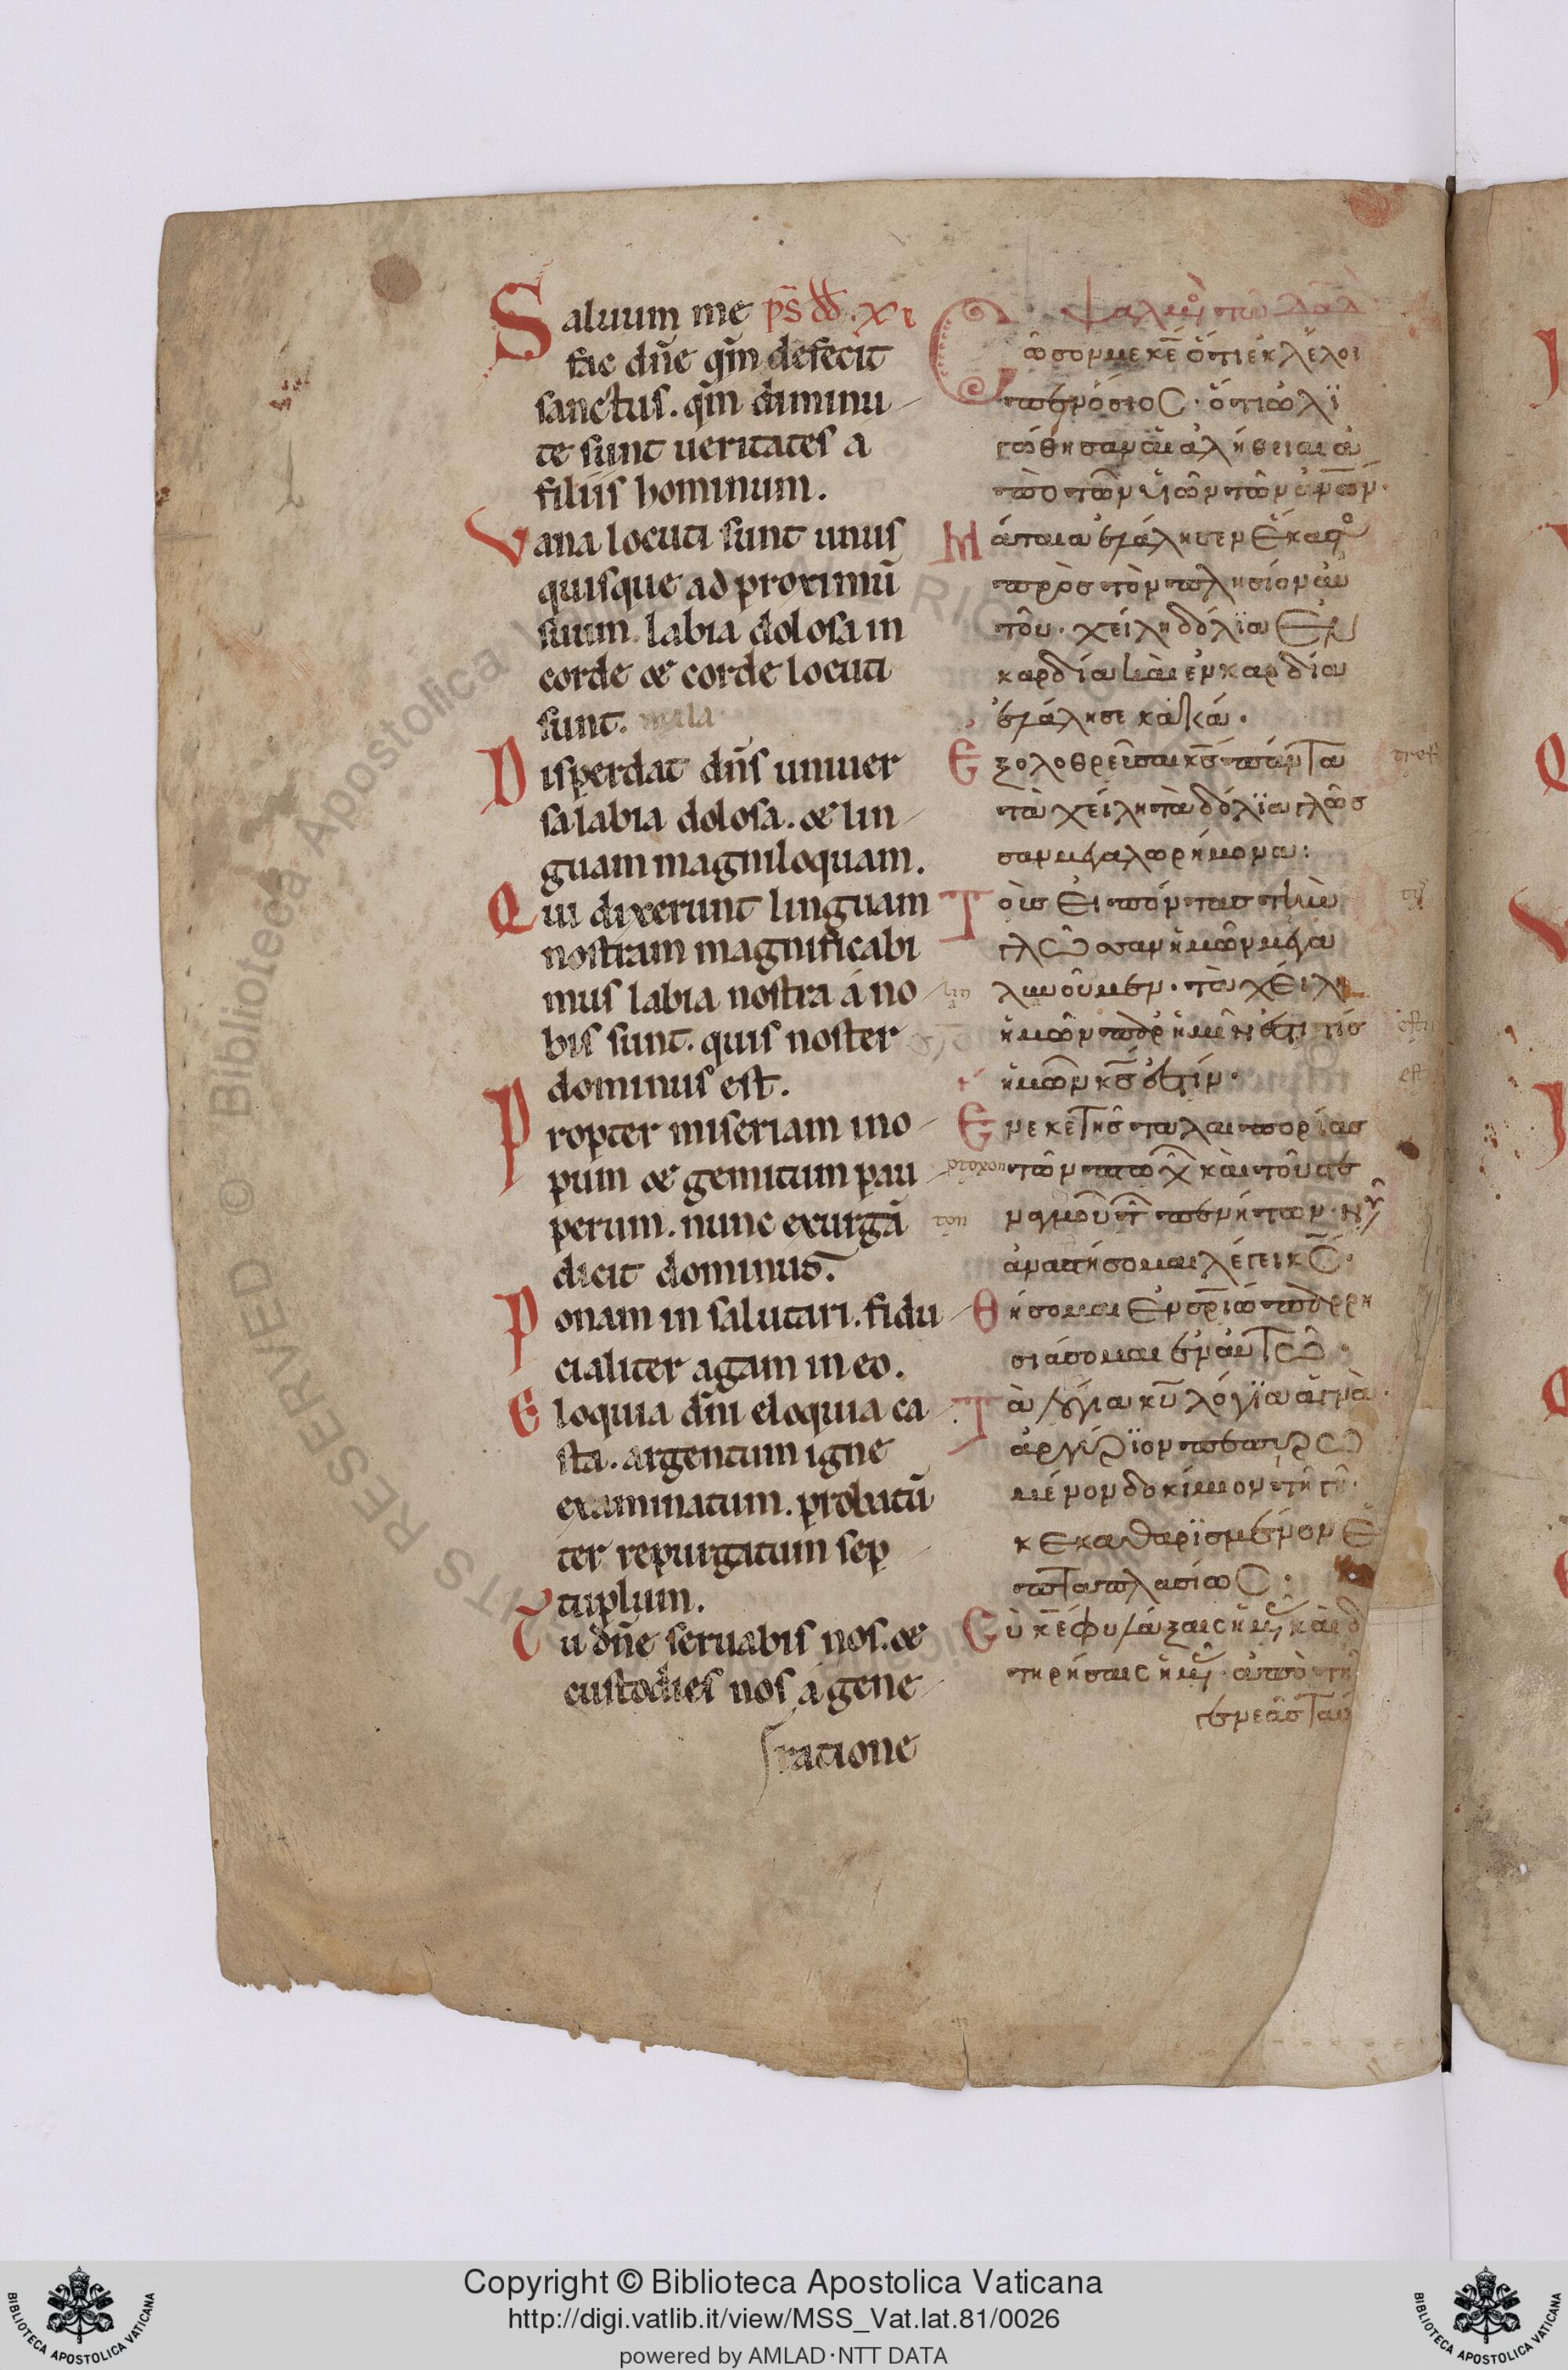 Saluum me ps̄ dd. xi
fac dn̄e qm̄ defecit
sanctus. qm̄ diminu
te sunt ueritates a
filiis hominum.
Vana locuti sunt unus
quisque ad proximū
suum. labia dolosa in
corde & corde locuti
sunt. mala
Disperdat dn̄s uniuer
sa labia dolosa. & lin
guam magniloquam.
Qui dixerunt linguam
nostram magnificabi
mus labia nostra á no
bis sunt. quis noster
dominus est.
Propter miseriam ino
pum & gemitum pau
perum. nunc exurgā
dicit dominus.
Ponam in salutari. fidu
cialiter agam in eo.
Eloquia dn̄i eloquia ca
sta. argentum igne
examinatum. probatū
ter repurgatum sep
tuplum.
Tu dn̄e seruabis nos. &
custodies nos á gene
ratione
ῶσομ με κε̄ ὅτι ἐκλέλοι
πεν ὅσιος. ὅτι ὠλϊ
γώθησαν ἁι ἀλήθειαι ἀ
πὸ τῶν ϋἱῶν τῶν ἀν̄ων.
Μάταια ἐλάλησεν ἕκαστο
πρὸσ τὸν πλησίον ἀυ
τοῦ. χείλη δόλϊα ἐν
καρδία καὶ ἐν καρδία
ἐλάλησε κακά.
Εξολοθρεῦσαι κσ̄ πάντα
τὰ χείλη τὰ δόλϊα γλῶσ
σαν μεγαλορήμονα:
Τοὺσ ἐιπόντασ τὴν
γλῶσσαν ἡμῶν μεγα
λυνοῦμεν. τὰ χείλη
ἡμῶν παρ ἡμῖν ἐστι τίσ
ἡμῶν κσ̄ ἐστίν.
Ενεκε τῆσ ταλαιπορίασ
τῶν πτωχ κὰι τοῦ στε
ναγμοῦ τ πενήτων. νῦ
ἀναστήσομαι λέγει κς̄.
Θήσομαι ἐν σρ̄ιω παρρη
σιάσομαι ἐν ἀυτῶ.
Τὰ λόγια κῡ λόγϊα ἁγνὰ.
ἀργύρϊον πεπυρω
μένον δοκίμιον τῆ γῆ.
κεκαθαρϊσμένον ἑ
πταπλασίως.
Σὺ κε̄ φυλάξαις ἡμ κὰι δ
τηρήσαις ἡμ. ἀπὸ τη
γενεᾶσ ταύ
Copyright © Biblioteca Apostolica Vaticana
http://digi.vatlib.it/view/MSS_Vat.lat.81/0026
powered by AMLAD·NTT DATA